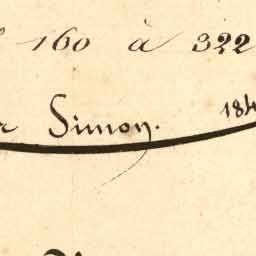 160 à 322
Simon. 184